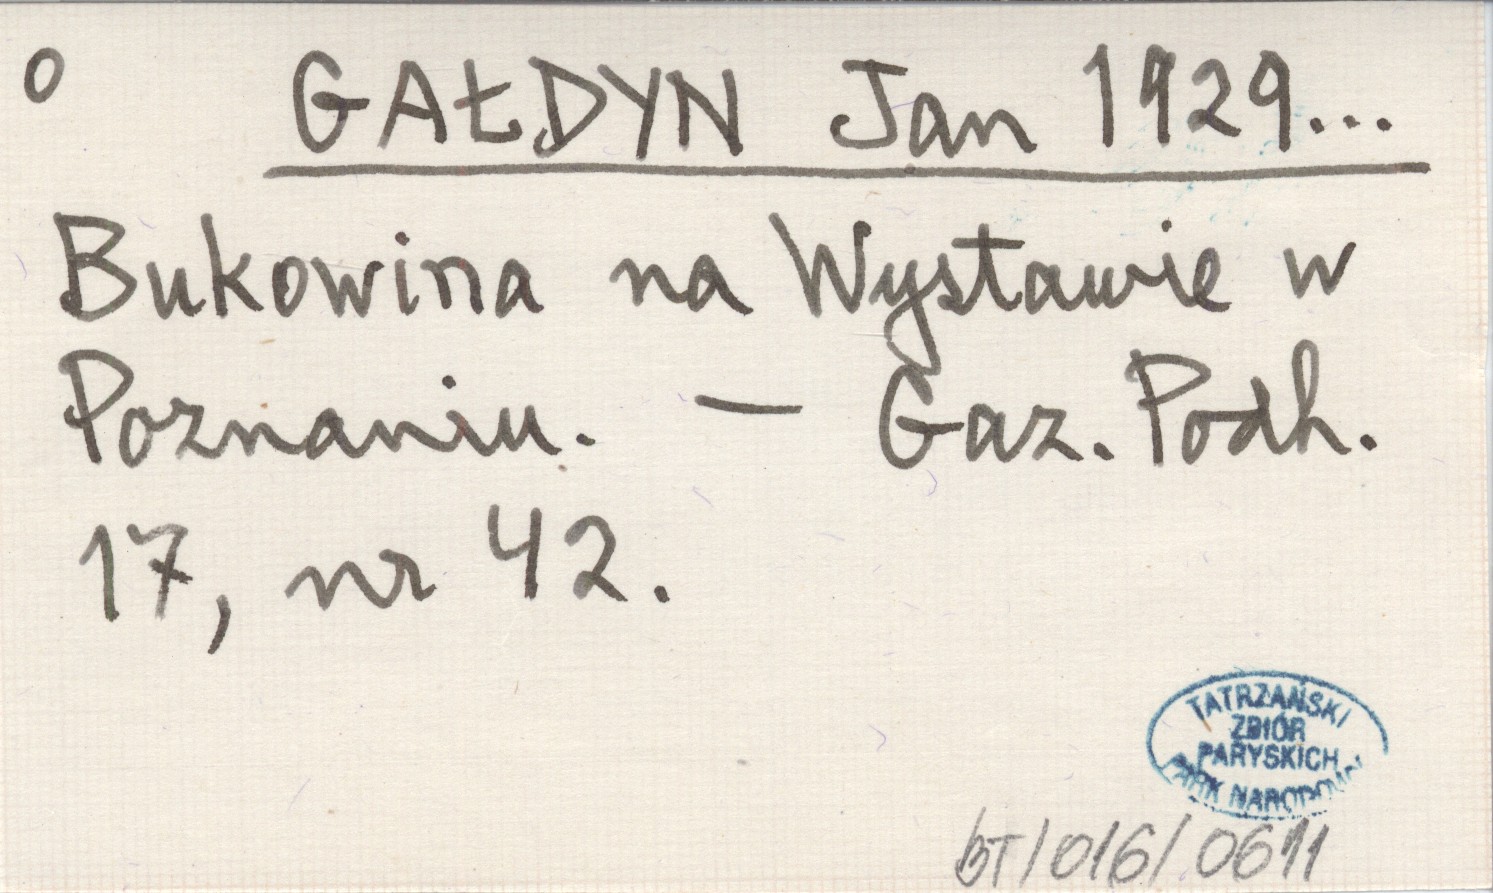 o GAŁDYN Jan 1929...
Bukowina na Wystawie w
Poznaniu. — Gaz. Podh.
17, nr 42.
TATRZAŃSKI
ZBIÓR
PARYSKICH
PARK NARODOWY
bT/016/0611